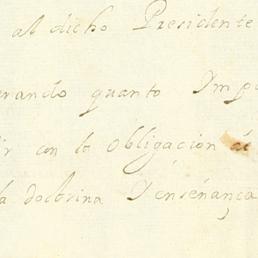 al dicho Presidente
rando quanto Impo
ir con la obligación de
la doctrina Y enseñança